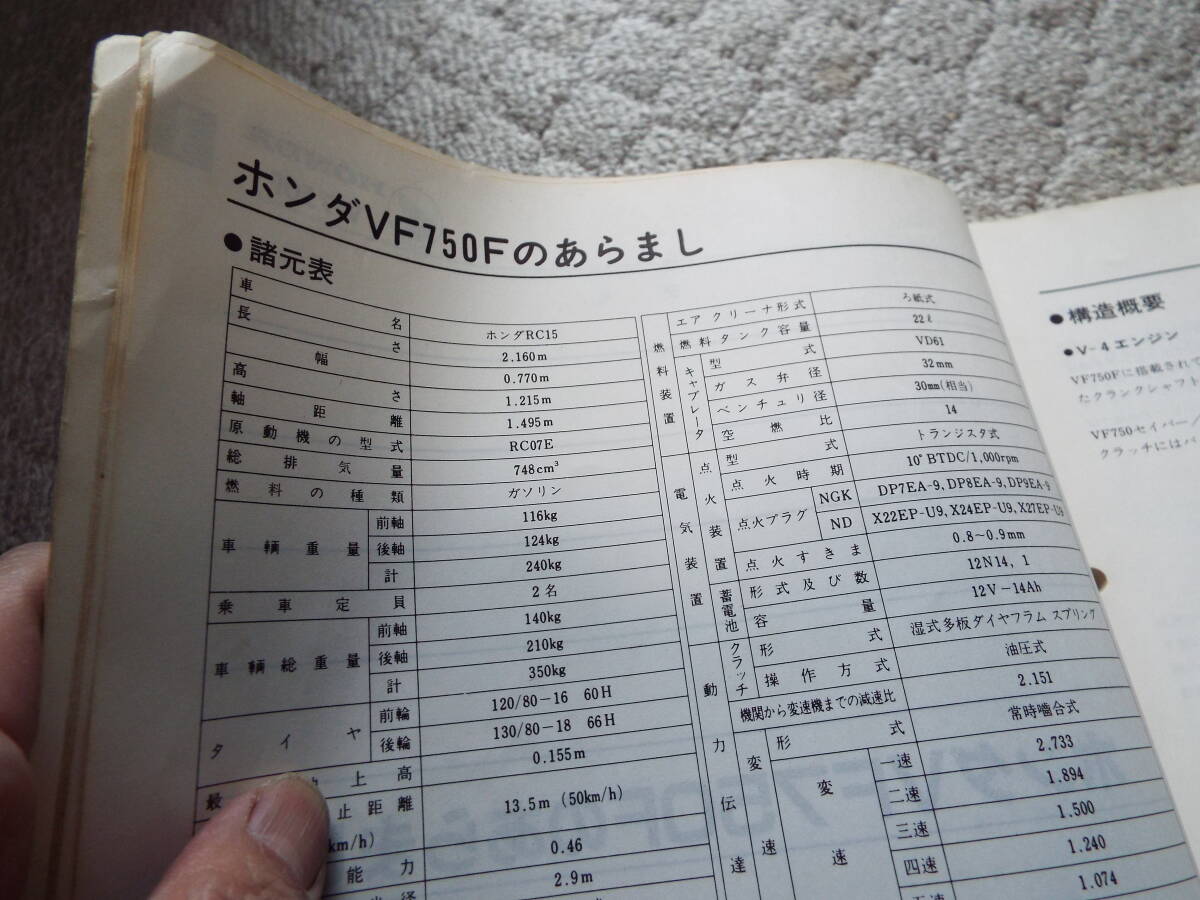 ホンダVF750Fのあらまし
●諸元表
車名 ホンダRC15
長さ 2.160m
幅 0.770m
高さ 1.215m
軸距離 1.495m
原動機の型式 RC07E
総排気量 748cm³
燃料の種類 ガソリン
車輌重量 前軸 116kg
後軸 124kg
計 240kg
乗車定員 2名
車輌総重量 前軸 140kg
後軸 210kg
計 350kg
タイヤ 前輪 120/80-16 60H
後輪 130/80-18 66H
最 上高 0.155m
止距離 13.5m (50km/h)
km/h) 0.46
能力
2.9m
燃料装置 エアクリーナ形式 ろ紙式
燃料タンク容量 22ℓ
キャブレータ 型式 VD61
ガス弁径 32mm
ベンチュリ径 30mm(相当)
空燃比 14
電気装置 点火装置 型式 トランジスタ式
点火時期 10°BTDC/1,000rpm
点火プラグ NGK DP7EA-9, DP8EA-9, DP9EA-9
ND X22EP-U9, X24EP-U9, X27EP-U9
点火すきま 0.8~0.9mm
蓄電池 形式及び数 12N14, 1
容量 12V-14Ah
動力伝達 クラッチ 形式 湿式多板ダイヤフラム スプリング
操作方式 油圧式
機関から変速機までの減速比 2.151
変速 形式 常時噛合式
変速 一速 2.733
二速 1.894
三速 1.500
四速 1.240
五速 1.074
●構造概要
●V-4エンジン
VF750Fに搭載され
たクランクシャフト
VF750セイバー/
クラッチにはバ